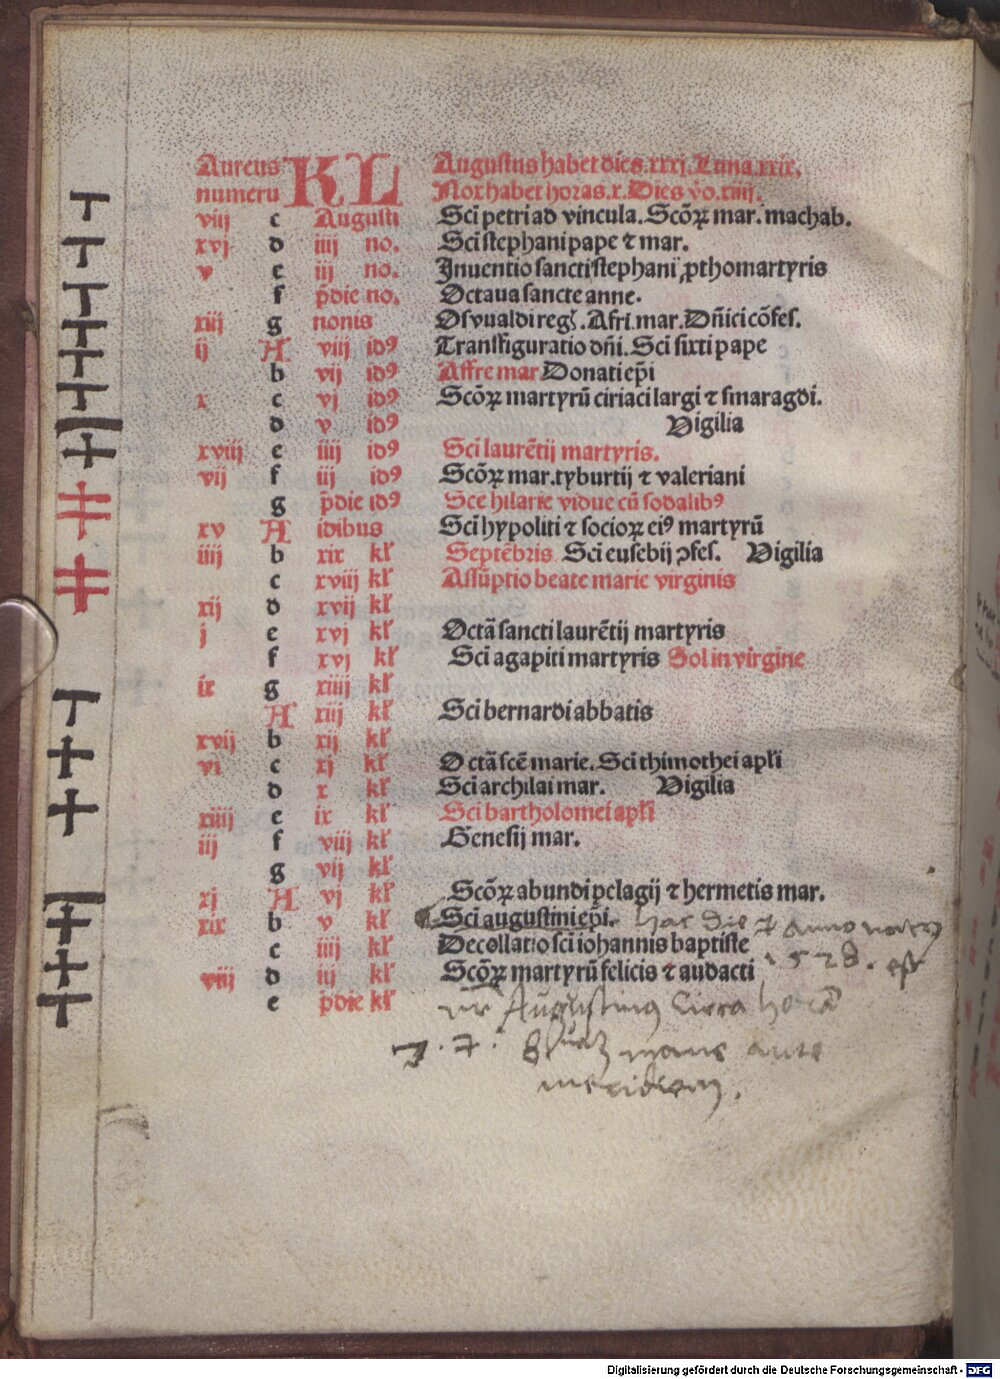 Aureus KL Augustus habet dies.xxxj.Luna.xxix.
numeru Nox habet horas.x.Dies v̊o.xiiij.
viij c Augusti Sci petri ad vincula.Scōꝝ mar. machab.
xvj d iiij no. Sci stephani pape ⁊ mar.
v e iij no. Inuentio sancti stephani ꝓthomartyris
f p̄die no. Octaua sancte anne.
xiij g nonis Osvualdi reg.Afri.mar.Dn̄ici cōfes.
ij A viij idꝰ Transfiguratio dn̄i.Sci sixti pape
b vij idꝰ Affre mar Donati ep̄i
x c vj idꝰ Scōꝝ martyrū ciriaci largi ⁊ smaragdi.
d v idꝰ Vigilia
xviij e iiij idꝰ Sci laurētij martyris.
vij f iij idꝰ Scōꝝ mar.tyburtij ⁊ valeriani
g p̄die idꝰ Sce hilarie vidue cū sodalibꝰ
xv A idibus Sci hypoliti ⁊ socioꝝ eiꝰ martyrū
iiij b xix kl' Septēbris Sci eusebij ↄfes. Vigilia
c xviij kl' Assūptio beate marie virginis
xij d xvij kl'
j e xvj kl' Octā sancti laurētij martyris
f xvj kl' Sci agapiti martyris Sol in virgine
ix g xiiij kl'
A xiij kl' Sci bernardi abbatis
xvij b xij kl'
vi c xj kl' Octā scē marie.Sci thimothei apl'i
d x kl' Sci archilai mar. Vigilia
xiiij e ix kl' Sci bartholomei apl'i
iij f viij kl' Genesij mar.
g vij kl'
xj A vj kl' Scōꝝ abundi pelagij ⁊ hermetis mar.
xix b v kl' Sci augustini ep̄i. hac die ⁊ anno
c iiij kl' Decollatio sci iohannis baptiste
1528. est
viij d iij kl' Scōꝝ martyrū felicis ⁊ audacti
e p̄die kl'
Augustinus circa horā
7. mane ante
meridiem.
Digitalisierung gefördert durch die Deutsche Forschungsgemeinschaft - DFG